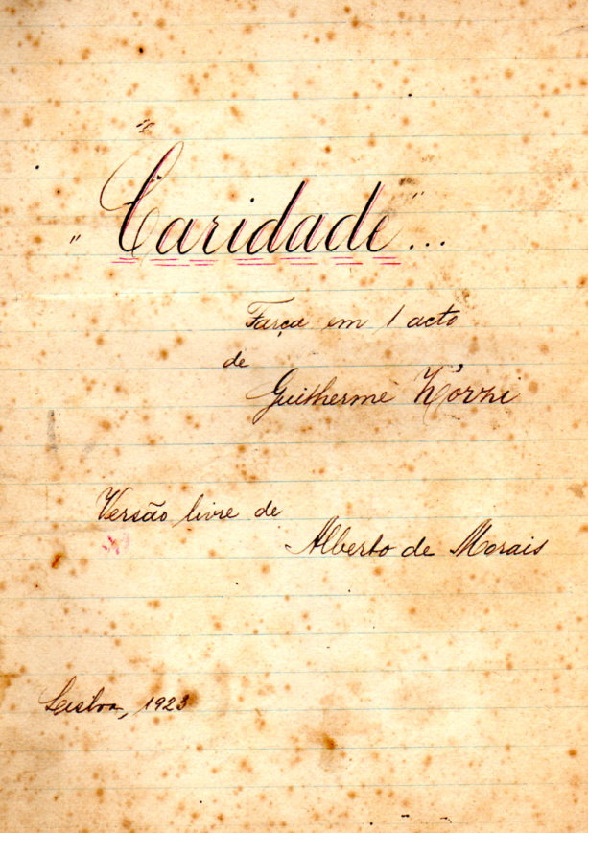 "Caridade"...
Farça em 1 acto
de
Guilherme Zorzi
Versão livre de
Alberto de Morais
Lisboa, 1923